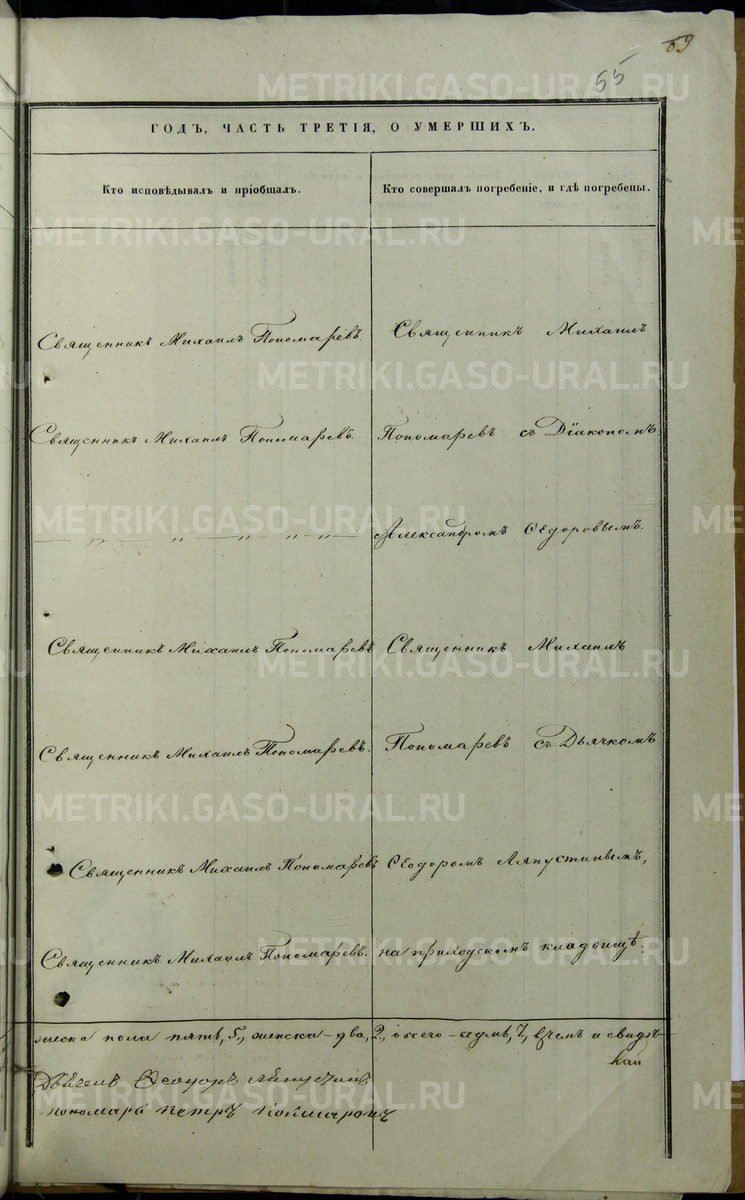 69
55
ГОДЪ, ЧАСТЬ ТРЕТІЯ, О УМЕРШИХЪ.
Кто исповѣдывалъ и пріобщалъ.
Кто совершалъ погребеніе, и гдѣ погребены.
Священникъ Михаилъ Пономаревъ.
Священникъ Михаилъ
Священникъ Михаилъ Пономаревъ.
Пономаревъ съ Діакономъ
— „ — „ — „ — „ — „ —
Александромъ Ѳедоровымъ.
Священникъ Михаилъ Пономаревъ
Священникъ Михаилъ
Священникъ Михаилъ Пономаревъ.
Пономаревъ съ Дьячкомъ
Священникъ Михаилъ Пономаревъ
Ѳеодоромъ Ляпустинымъ,
Священникъ Михаилъ Пономаревъ.
на приходскомъ кладбищѣ.
мужеска пола пять, 5, женска – два, 2, всего – седмь, 7, въ чемъ и свидѣ-
Дьячекъ Ѳеодоръ Ляпустинъ
пономарь Петръ
METRIKI.GASO-URAL.RU